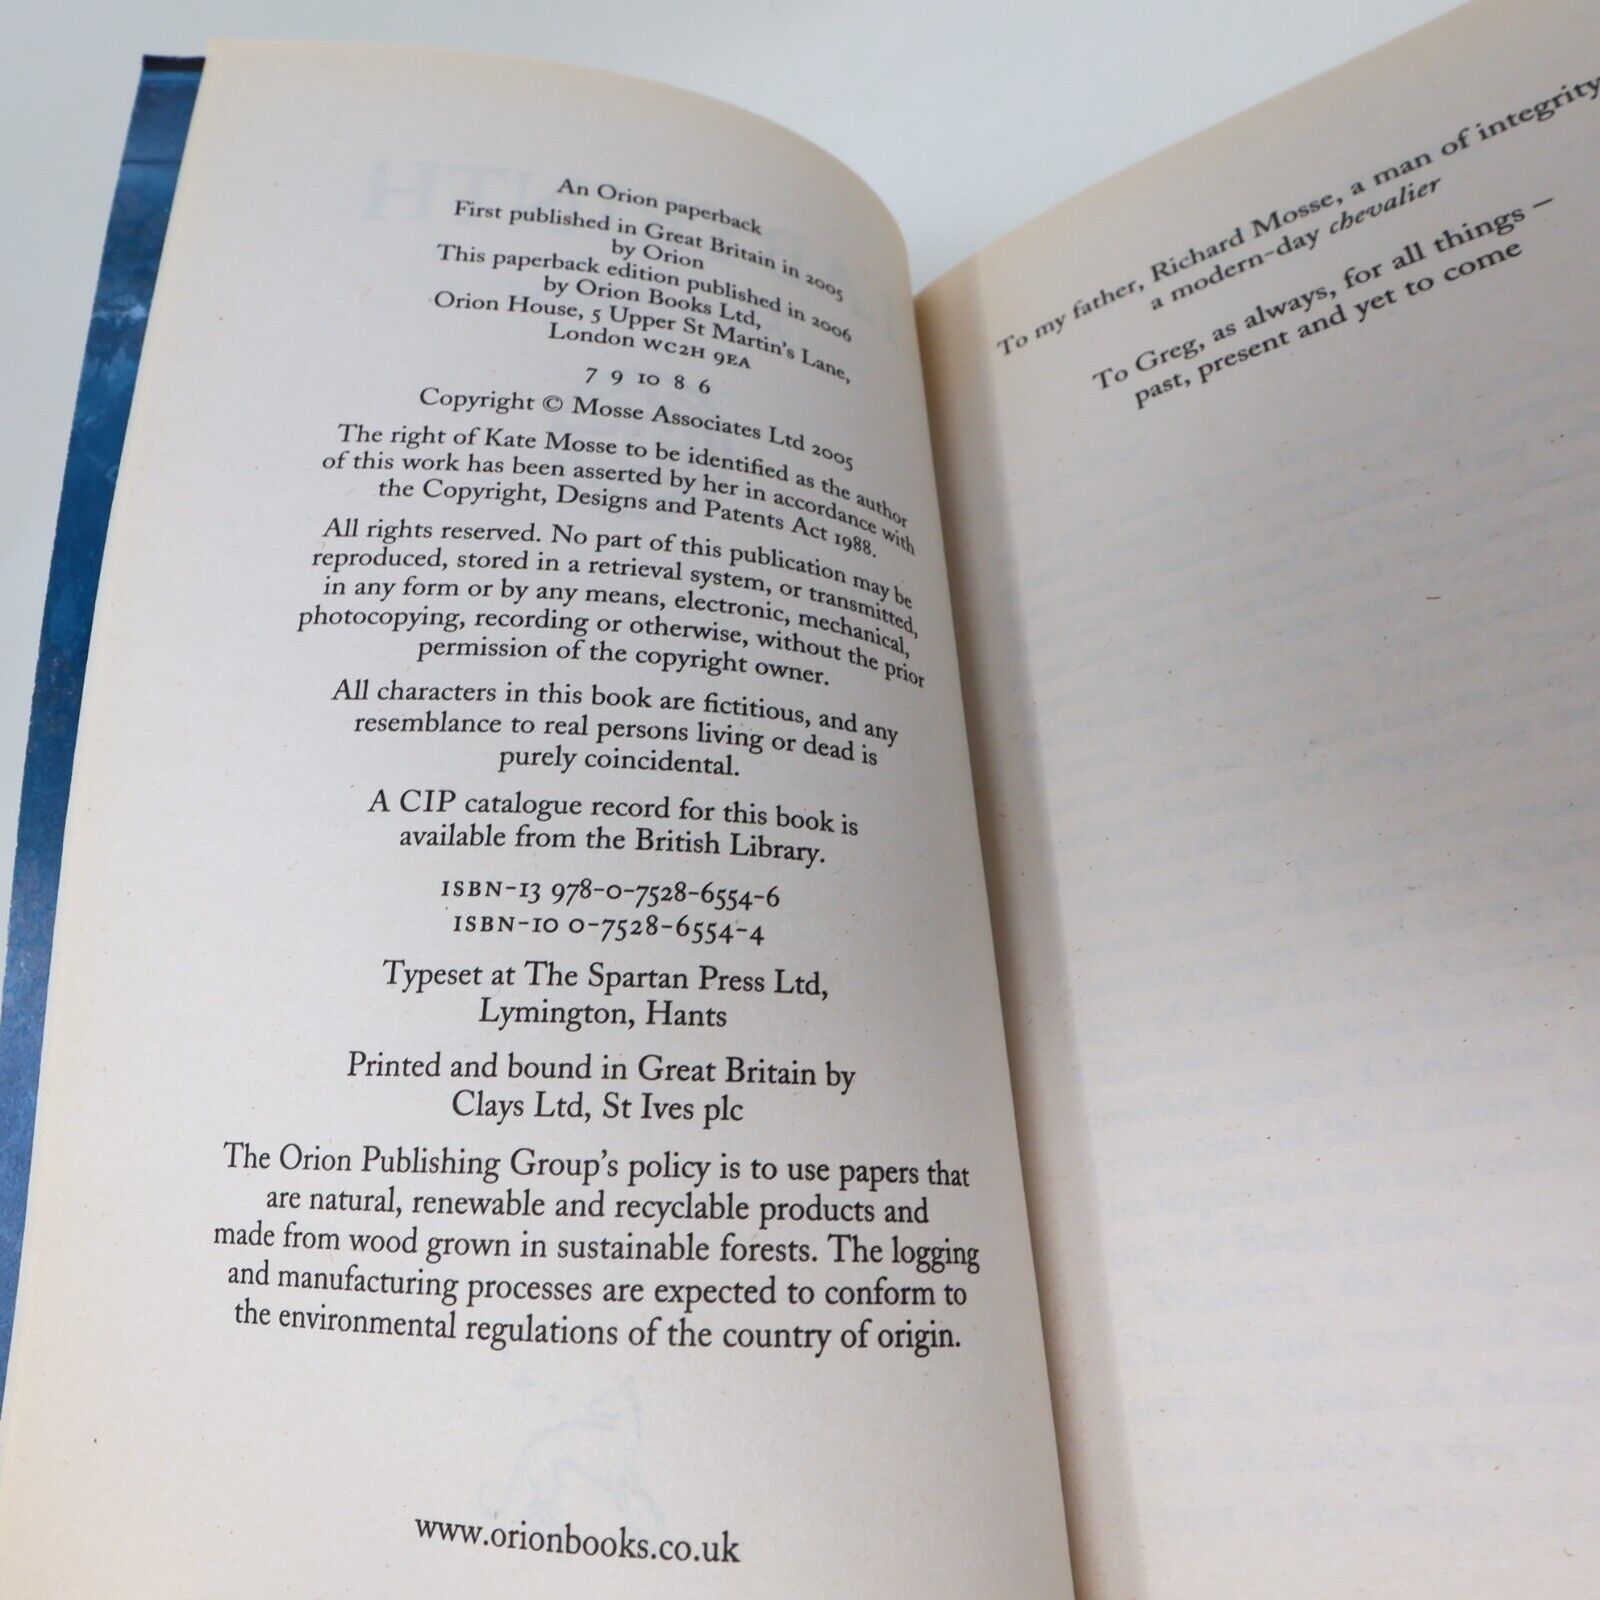 An Orion paperback
First published in Great Britain in 2005
by Orion
This paperback edition published in 2006
by Orion Books Ltd,
Orion House, 5 Upper St Martin's Lane,
London WC2H 9EA
7 9 10 8 6
Copyright © Mosse Associates Ltd 2005
The right of Kate Mosse to be identified as the author
of this work has been asserted by her in accordance with
the Copyright, Designs and Patents Act 1988.
All rights reserved. No part of this publication may be
reproduced, stored in a retrieval system, or transmitted,
in any form or by any means, electronic, mechanical,
photocopying, recording or otherwise, without the prior
permission of the copyright owner.
All characters in this book are fictitious, and any
resemblance to real persons living or dead is
purely coincidental.
A CIP catalogue record for this book is
available from the British Library.
ISBN-13 978-0-7528-6554-6
ISBN-10 0-7528-6554-4
Typeset at The Spartan Press Ltd,
Lymington, Hants
Printed and bound in Great Britain by
Clays Ltd, St Ives plc
The Orion Publishing Group's policy is to use papers that
are natural, renewable and recyclable products and
made from wood grown in sustainable forests. The logging
and manufacturing processes are expected to conform to
the environmental regulations of the country of origin.
www.orionbooks.co.uk
To my father, Richard Mosse, a man of integrity
a modern-day chevalier
To Greg, as always, for all things –
past, present and yet to come